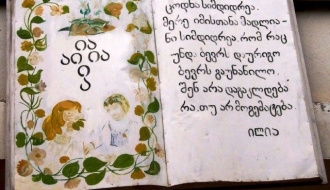 ია
აი ია
ი
ა
ცოდნა სიმდიდრეა.
მერე იმისთანა მადლია-
ნი სიმდიდრეა, რომ რაც
უნდა ბევრს დაურიგო
ბევრს გაუნაწილო.
შენ არა დაგაკლდება
რა, თუ არ მოგემატება.
ილია